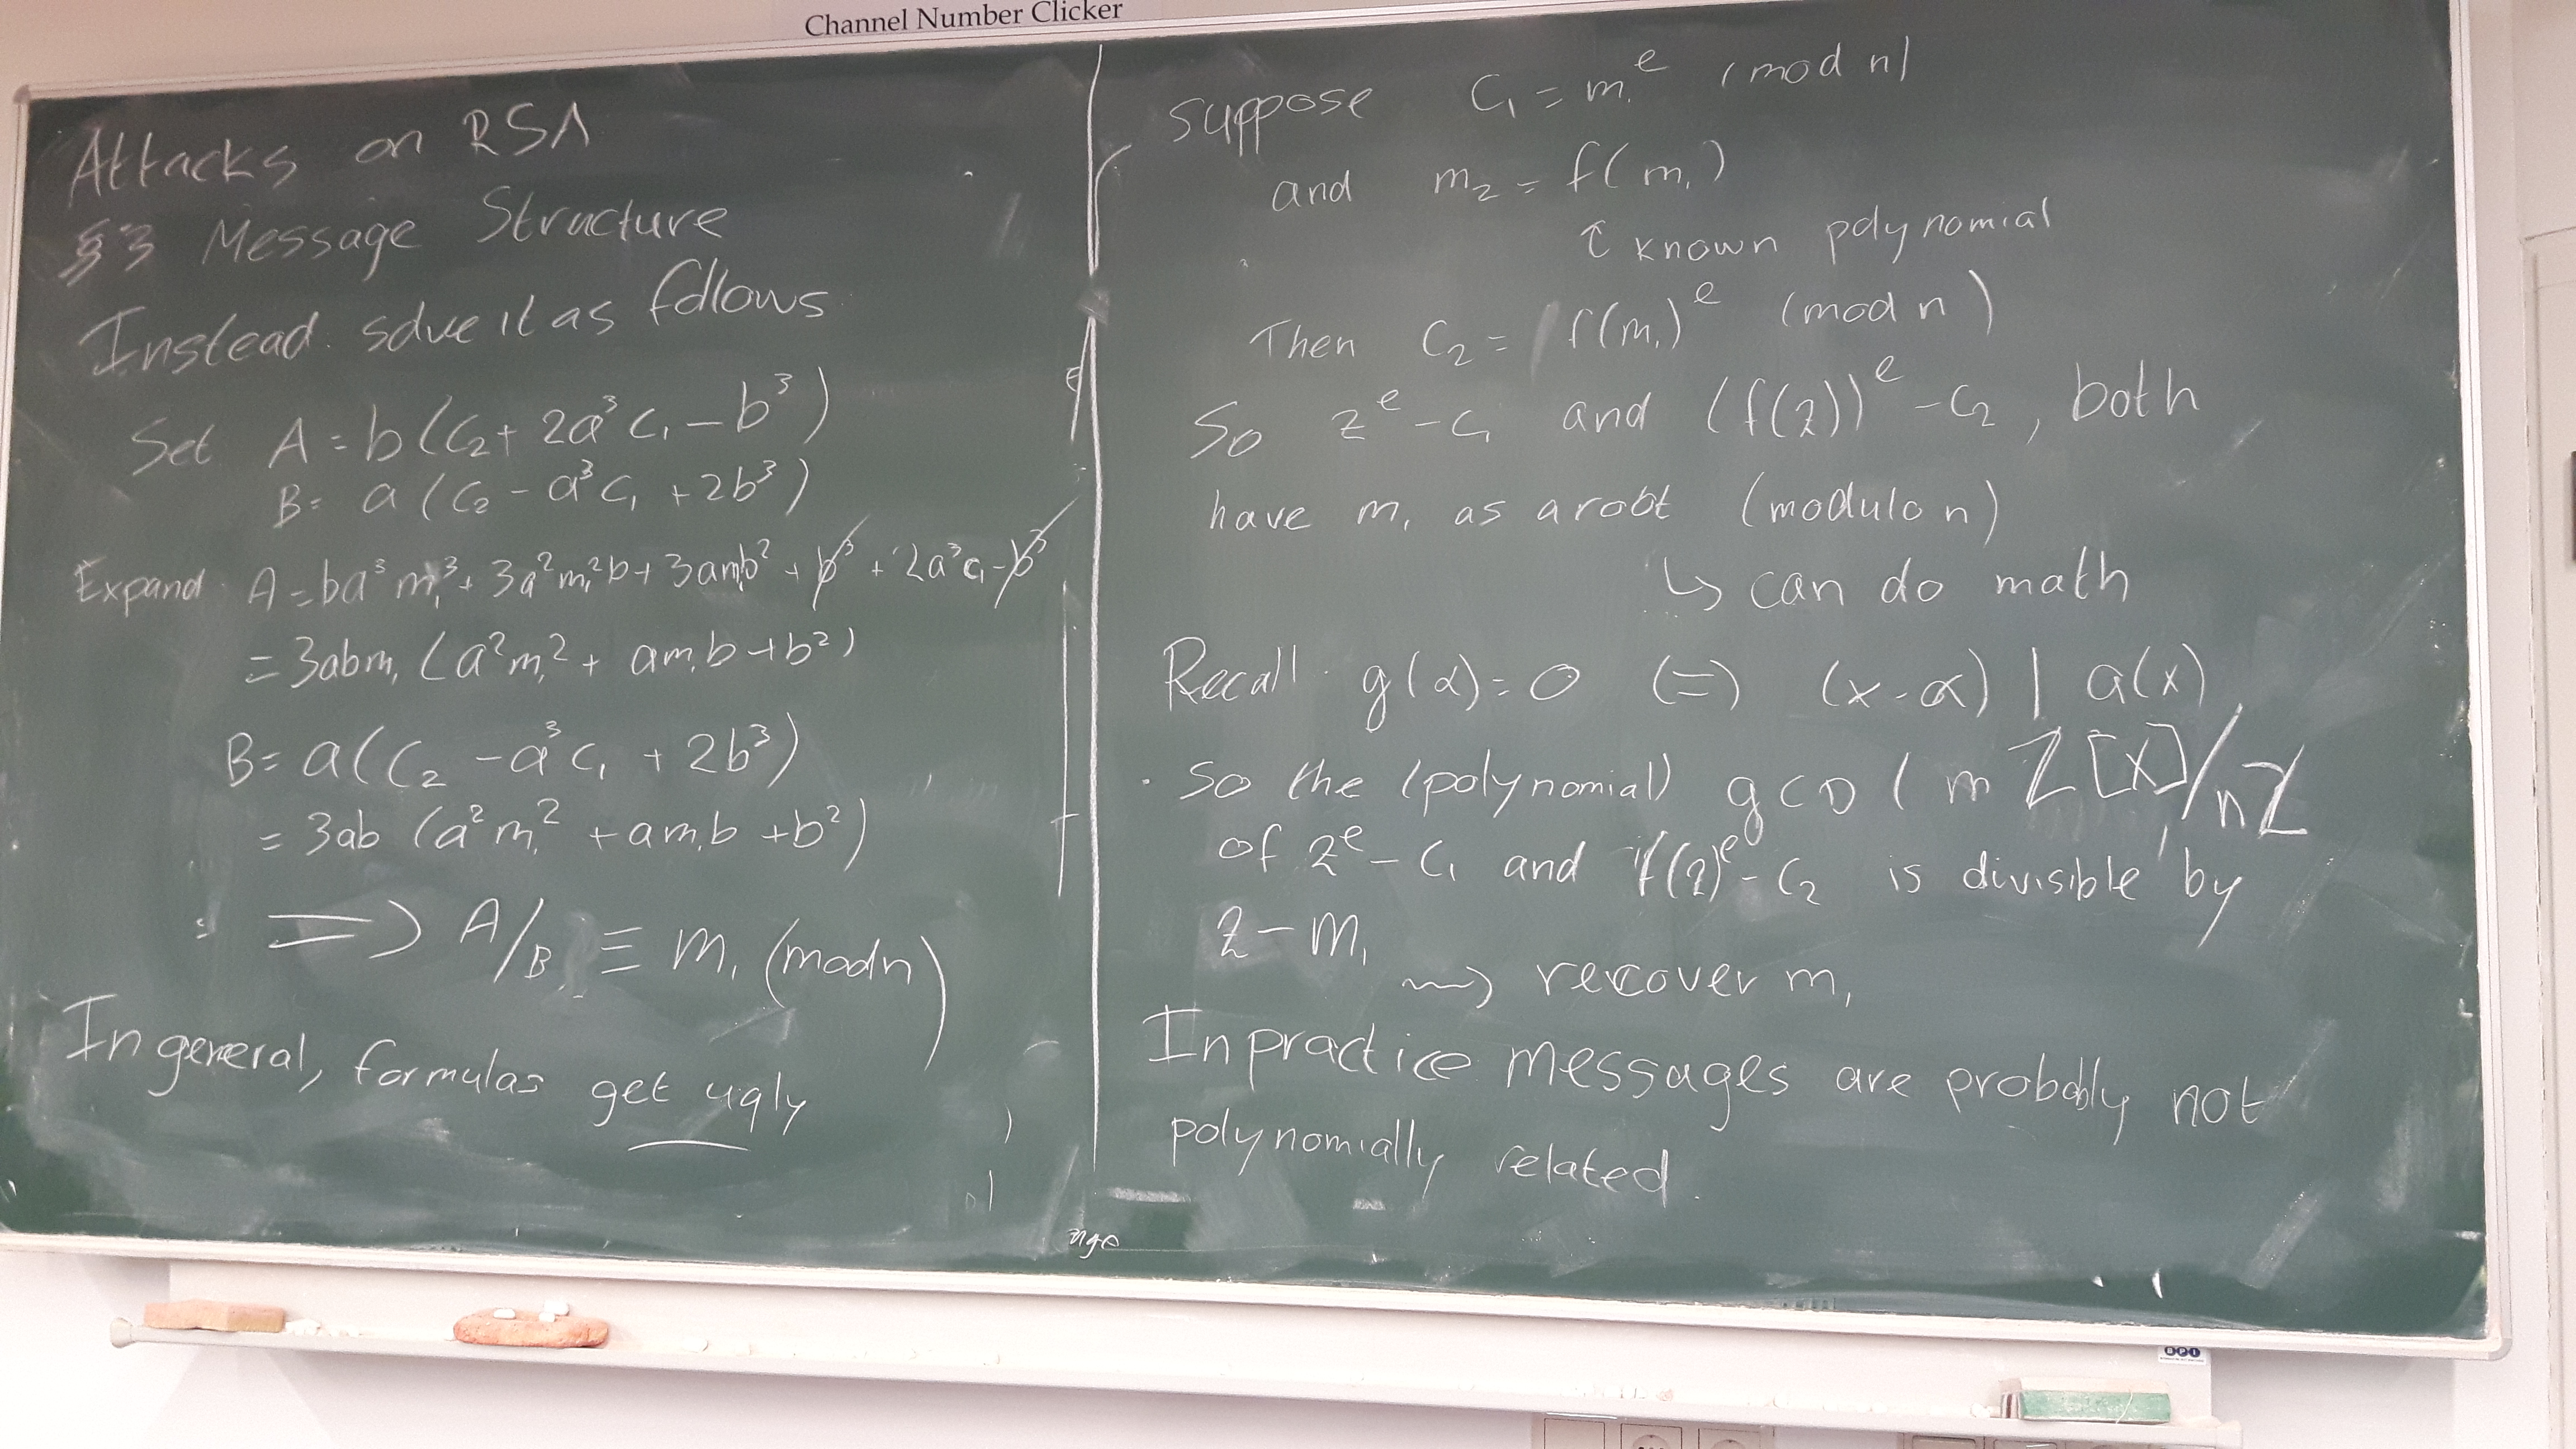 Channel Number Clicker
Attacks on RSA
§3 Message Structure
Instead solve it as follows
Set A = b(c₂ + 2a³c₁ - b³)
B = a(c₂ - a³c₁ + 2b³)
Expand A = ba³m₁³ + 3a²m₁²b + 3am₁b² + b³ + 2a³c₁ - b³
= 3abm₁(a²m₁² + am₁b + b²)
B = a(c₂ - a³c₁ + 2b³)
= 3ab(a²m₁² + am₁b + b²)
⟹ A/B ≡ m₁ (mod n)
In general, formulas get ugly
Suppose c₁ = m₁ᵉ (mod n)
and m₂ = f(m₁)
↑ known polynomial
Then c₂ = f(m₁)ᵉ (mod n)
So zᵉ - c₁ and (f(z))ᵉ - c₂, both
have m₁ as a root (modulo n)
↳ can do math
Recall g(α) = 0 (=) (x - α) | a(x)
So the (polynomial) gcd (m Z[X]/nZ
of zᵉ - c₁ and f(z)ᵉ - c₂ is divisible by
z - m₁
⇝ recover m₁
In practice messages are probably not
polynomially related.
nge
BPI